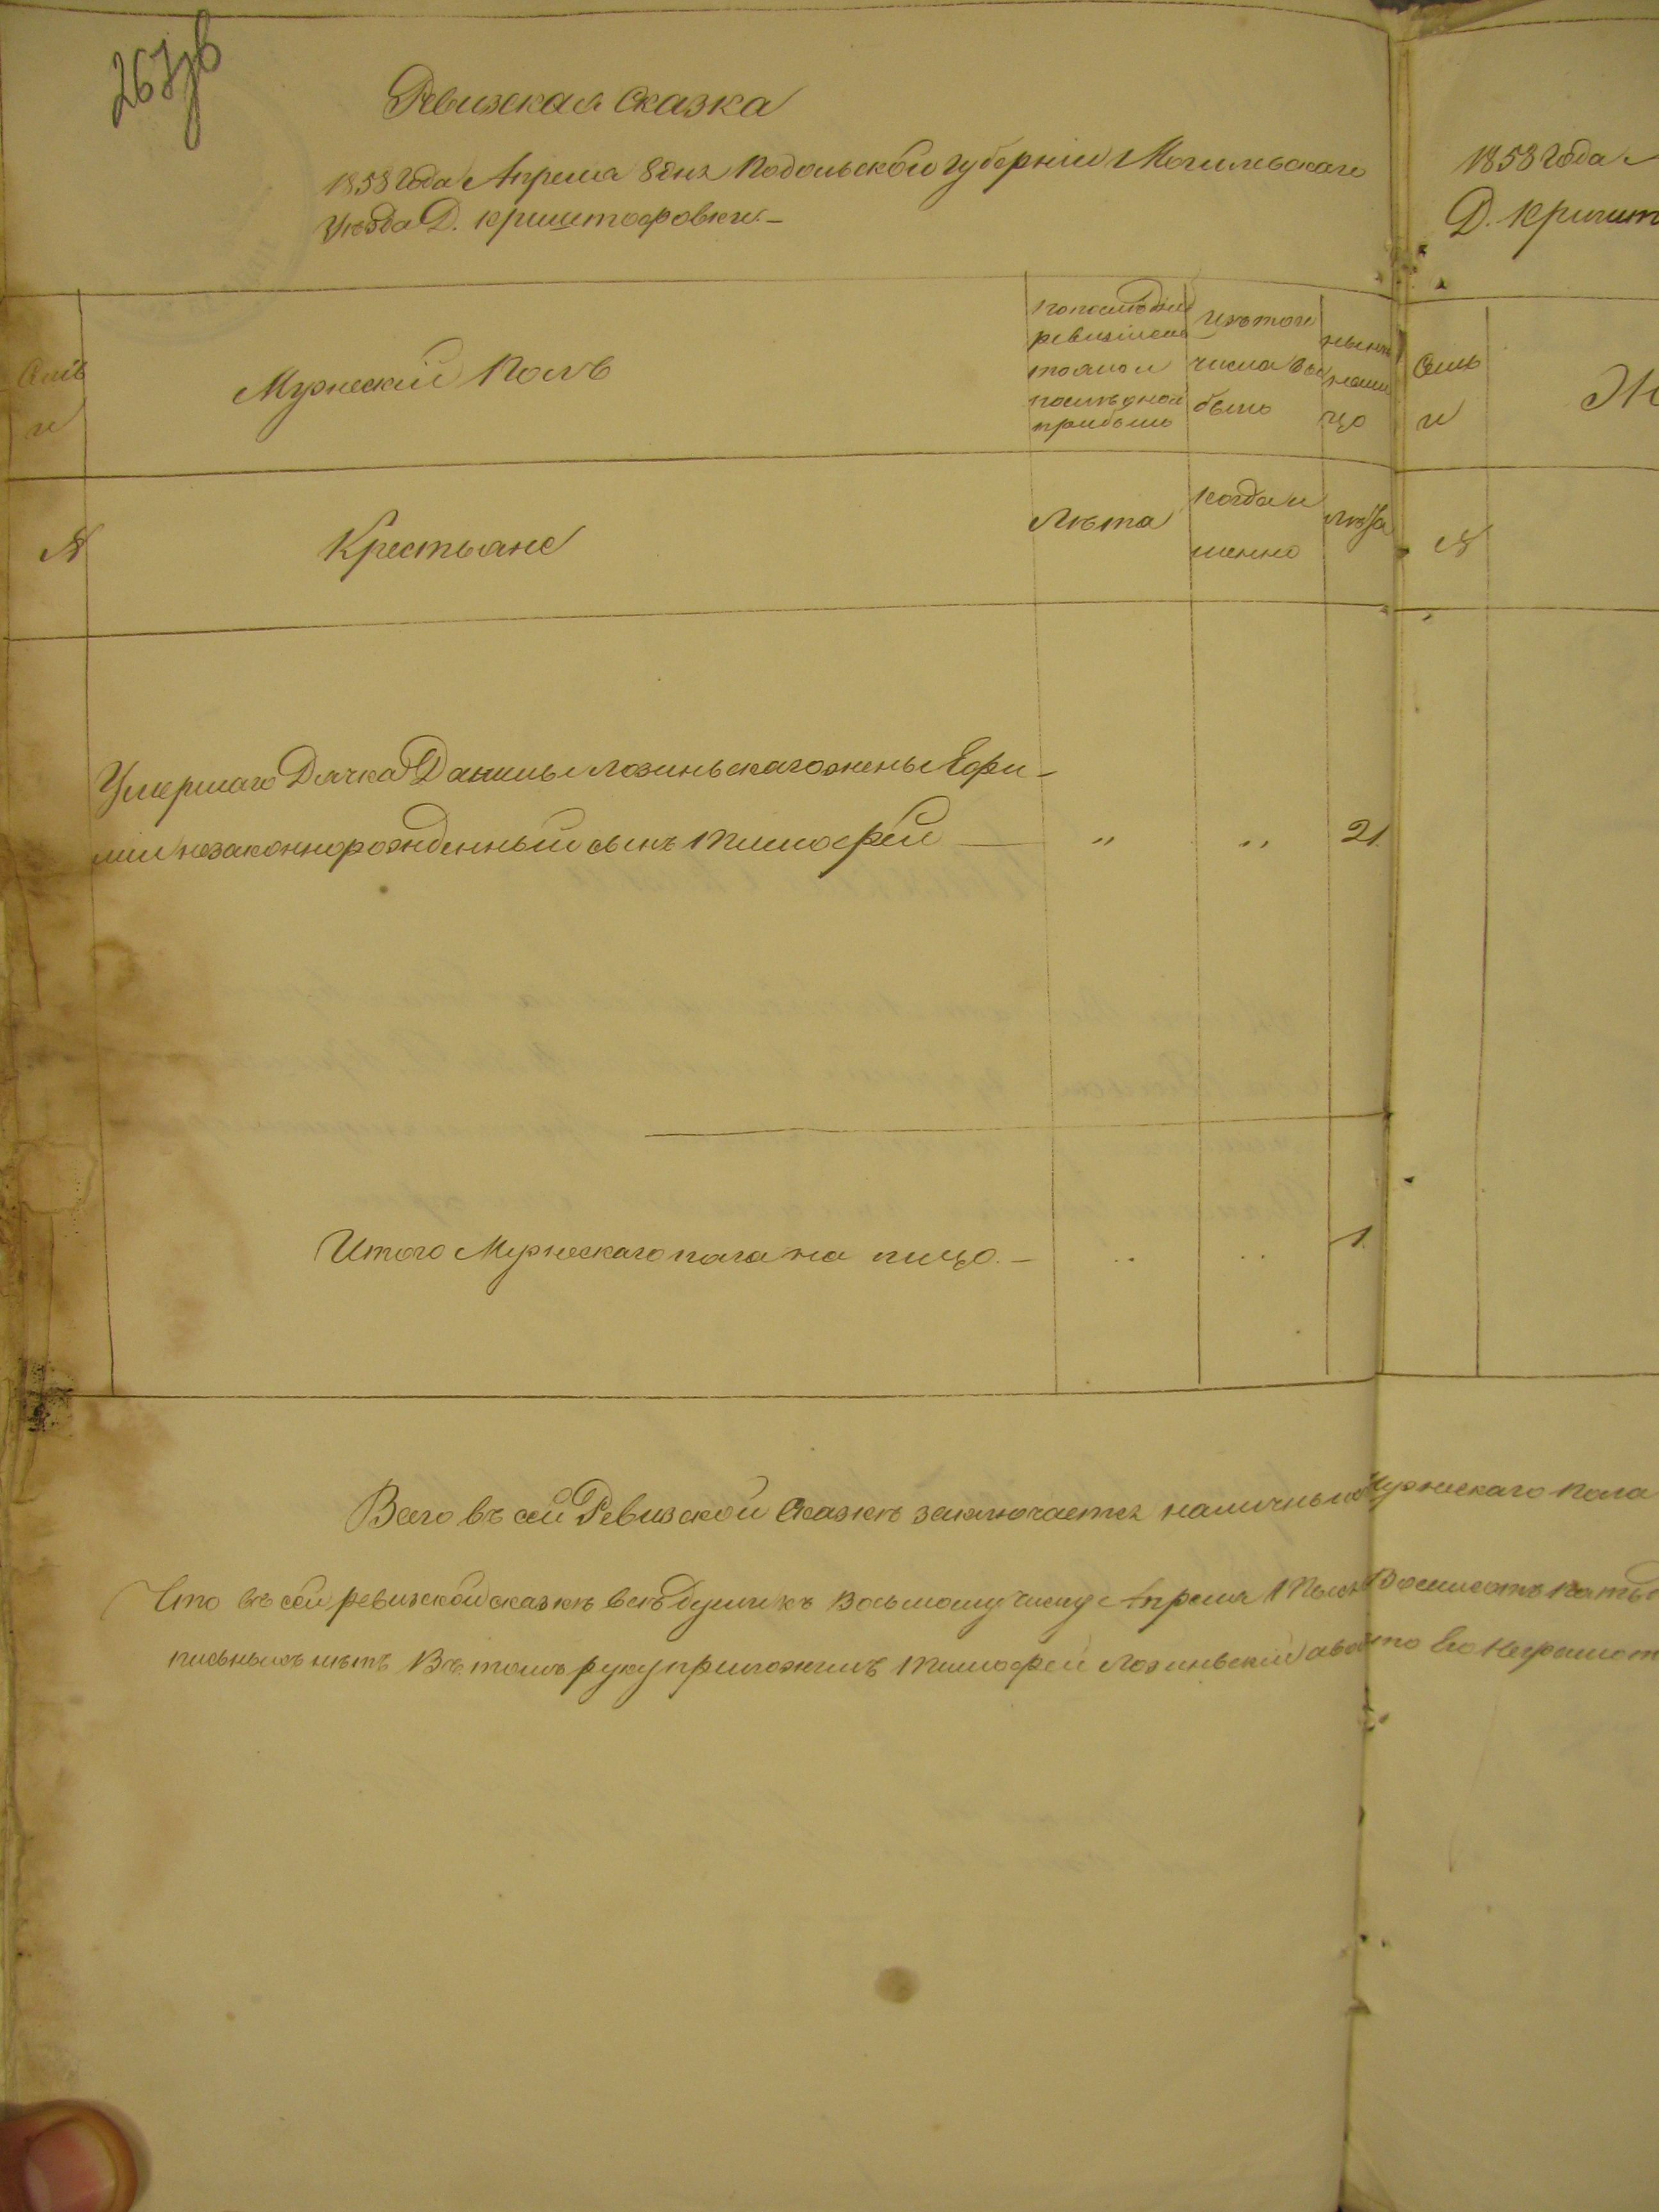 267зв
Ревизкая Сказка
1858 года Апреля 8 дня Подольской губерніи Могилевскаго
Уѣзда Д. криштофовки.-
1858 года
Д. Кришт
Семь
и
Мужескій Полъ
по последней
ревизіи сос
тояло и
после оной
прибыло
Изъ того
числа вы
было
нынѣ
на ли
цо
Семь
и
Ж
№
Крестьяне
Лѣта
когда и
менно
лѣта
№
Умершаго Дячка Данилы Лозинскаго жены Ефи-
мии незаконнорожденный сынъ Тимофей — " " 21.
Итого Мужескаго пола на лицо. - " " 1.
Всего въ сей Ревизской Сказкѣ заключается наличныхъ Мужескаго пола
Что въ сей ревизской сказкѣ всѣ души къ Восьмому числу Апреля Тысяч Восмисотъ пятьд
письныхъ нѣтъ Въ томъ руку приложилъ Тимофей Лозинский а вместо Его Неграмот